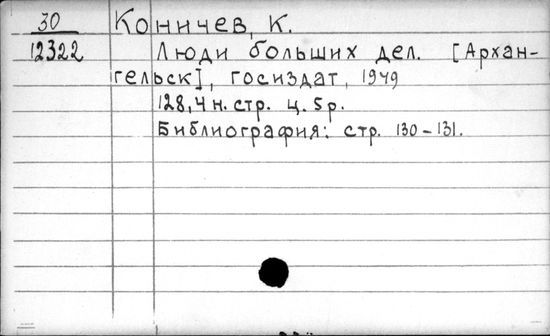 30 Коничев, К.
12322 Люди больших дел. [Архан-
гельск], госиздат, 1949
128,4 н. стр. ц. 5 р.
Библиография: стр. 130-131.